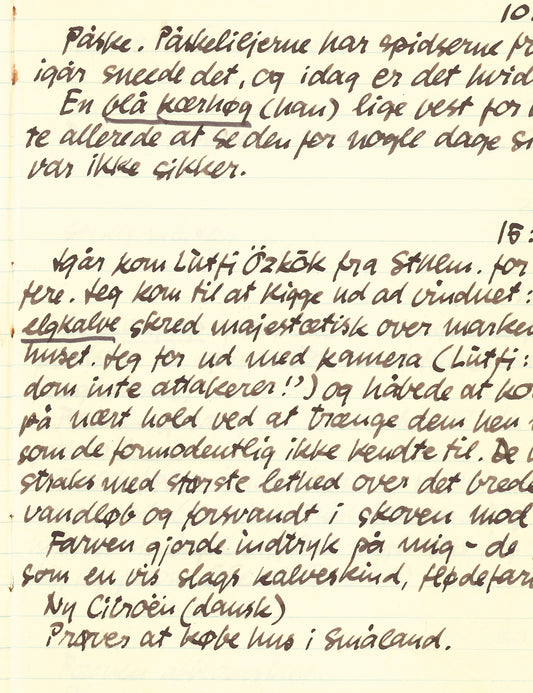 10.
Påske. Påskeliljerne har spidserne fr
igår sneede det, og idag er det hvid
En blå kærhøg (han) lige vest for
te allerede at se den for nogle dage s
var ikke sikker.
15:
Igår kom Lütfi Özkök fra Sthlm. for
fere. Jeg kom til at kigge ud ad vinduet:
elgkalve skred majestætisk over marken
huset. Jeg for ud med kamera (Lütfi:
dom inte attakerer!") og håbede at ko
på nært hold ved at trænge dem hen
som de formodentlig ikke kendte til. De
straks med største lethed over det brede
vandløb og forsvandt i skoven mod
Farven gjorde indtryk på mig - de
som en vis slags kalveskind, flødefar
Ny Citroën (dansk)
Prøver at købe hus i Småland.